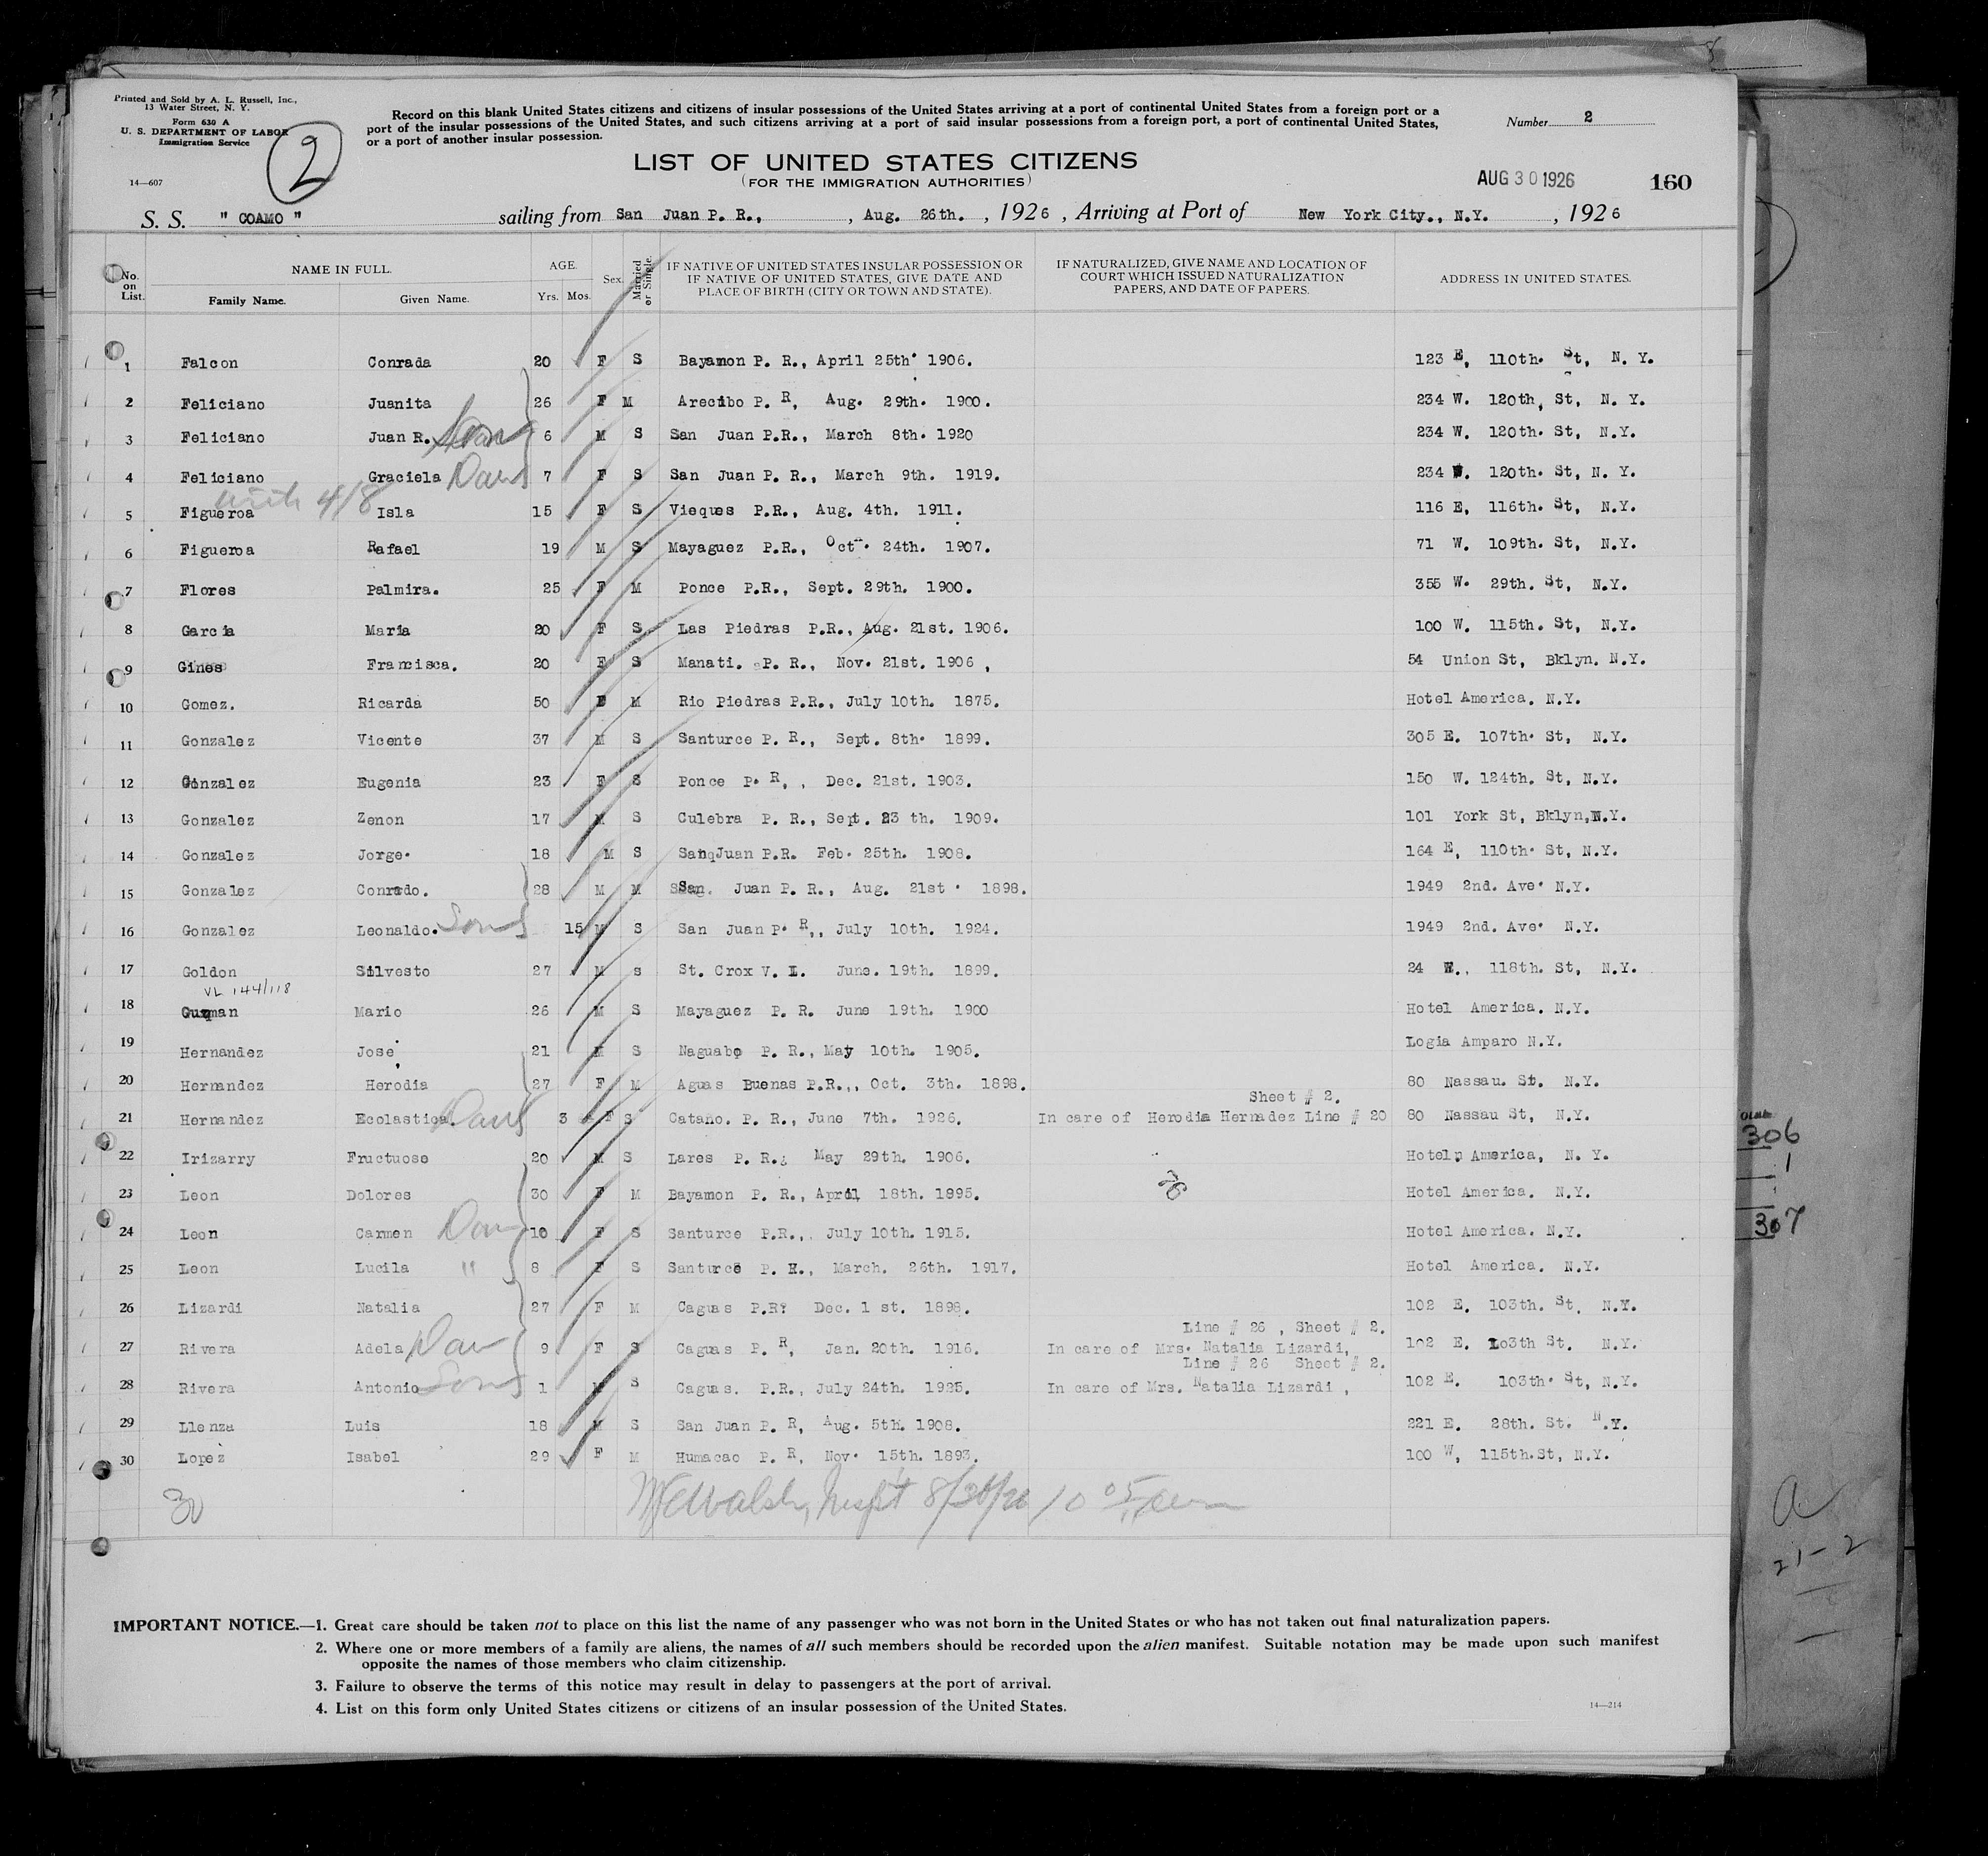 Printed and Sold by A. L. Russell, Inc.,
13 Water Street, N. Y.
Form 630 A
U. S. DEPARTMENT OF LABOR
Immigration Service
14—607
2
Record on this blank United States citizens and citizens of insular possessions of the United States arriving at a port of continental United States from a foreign port or a
port of the insular possessions of the United States, and such citizens arriving at a port of said insular possessions from a foreign port, a port of continental United States,
or a port of another insular possession.
Number 2
LIST OF UNITED STATES CITIZENS
(FOR THE IMMIGRATION AUTHORITIES)
AUG 30 1926 160
S. S. " COAMO " sailing from San Juan P. R., , Aug. 26th. , 1926 , Arriving at Port of New York City., N.Y. , 1926
No. on List. NAME IN FULL. Family Name. Given Name. AGE. Yrs. Mos. Sex. Married or Single. IF NATIVE OF UNITED STATES INSULAR POSSESSION OR IF NATIVE OF UNITED STATES, GIVE DATE AND PLACE OF BIRTH (CITY OR TOWN AND STATE). IF NATURALIZED, GIVE NAME AND LOCATION OF COURT WHICH ISSUED NATURALIZATION PAPERS, AND DATE OF PAPERS. ADDRESS IN UNITED STATES.
1 Falcon Conrada 20 F S Bayamon P. R., April 25th. 1906. 123 E, 110th. St, N. Y.
2 Feliciano Juanita 26 F M Arecibo P. R, Aug. 29th. 1900. 234 W. 120th, St, N. Y.
3 Feliciano Juan R. Son 6 M S San Juan P.R., March 8th. 1920 234 W. 120th. St, N.Y.
4 Feliciano Graciela Dau 7 F S San Juan P. R., March 9th. 1919. 234 W. 120th. St, N. Y.
with 4/8
5 Figueroa Isla 15 F S Vieques P.R., Aug. 4th. 1911. 116 E, 116th. St, N.Y.
6 Figueroa Rafael 19 M S Mayaguez P.R., Oct. 24th. 1907. 71 W. 109th. St, N.Y.
7 Flores Palmira. 25 F M Ponce P.R., Sept. 29th. 1900. 355 W. 29th. St, N.Y.
8 Garcia Maria 20 F S Las Piedras P.R., Aug. 21st. 1906. 100 W. 115th. St, N.Y.
9 Gines Francisca. 20 F S Manati. P. R., Nov. 21st. 1906 , 54 Union St, Bklyn. N.Y.
10 Gomez. Ricarda 50 F M Rio Piedras P.R., July 10th. 1875. Hotel America. N.Y.
11 Gonzalez Vicente 37 M S Santurce P. R., Sept. 8th. 1899. 305 E. 107th. St, N.Y.
12 Gonzalez Eugenia 23 F S Ponce P. R, , Dec. 21st. 1903. 150 W. 124th. St, N.Y.
13 Gonzalez Zenon 17 M S Culebra P. R., Sept. 23 th. 1909. 101 York St, Bklyn,N.Y.
14 Gonzalez Jorge. 18 M S San Juan P.R. Feb. 25th. 1908. 164 E, 110th. St, N.Y.
15 Gonzalez Conrado. 28 M M San. Juan P. R., Aug. 21st . 1898. 1949 2nd. Ave. N.Y.
16 Gonzalez Leonaldo. Son 15 M S San Juan P. R,, July 10th. 1924. 1949 2nd. Ave. N.Y.
17 Goldon Silvesto 27 M s St. Crox V. I. June. 19th. 1899. 24 W., 118th. St, N.Y.
VL 144/118
18 Guzman Mario 26 M S Mayaguez P. R. June 19th. 1900 Hotel America. N.Y.
19 Hernandez Jose 21 M S Naguabo P. R., May 10th. 1905. Logia Amparo N.Y.
20 Hernandez Herodia 27 F M Aguas Buenas P.R.,, Oct. 3th. 1898. 80 Nassau. St. N.Y.
Sheet # 2.
21 Hernandez Ecolastica. Dau 3 F S Cataño. P. R., June 7th. 1926. In care of Herodia Hernadez Line # 20 80 Nassau St, N.Y.
22 Irizarry Fructuoso 20 M S Lares P. R.; May 29th. 1906. Hotel America, N. Y.
23 Leon Dolores 30 F M Bayamon P. R., April 18th. 1895. Hotel America. N.Y.
24 Leon Carmen Dau 10 F S Santurce P.R.,. July 10th. 1915. Hotel America. N.Y.
25 Leon Lucila " 8 F S Santurce P. R., March. 26th. 1917. Hotel America. N.Y.
26 Lizardi Natalia 27 F M Caguas P.R? Dec. 1 st. 1898. 102 E. 103th. St, N.Y.
Line # 26 , Sheet # 2.
27 Rivera Adela Dau 9 F S Caguas P. R, Jan. 20th. 1916. In care of Mrs. Natalia Lizardi, 102 E. 103th St. N.Y.
Line # 26 Sheet # 2.
28 Rivera Antonio Son 1 M S Caguas. P.R., July 24th. 1925. In care of Mrs. Natalia Lizardi , 102 E. 103th. St, N.Y.
29 Llenza Luis 18 M S San Juan P. R, Aug. 5th. 1908. 221 E. 28th. St. N.Y.
30 Lopez Isabel 29 F M Humacao P. R, Nov. 15th. 1893. 100 W, 115th.St, N.Y.
30 Walsh, Inspt 8/30/26 10 05 am
306
1
307
21-2
IMPORTANT NOTICE.—1. Great care should be taken not to place on this list the name of any passenger who was not born in the United States or who has not taken out final naturalization papers.
2. Where one or more members of a family are aliens, the names of all such members should be recorded upon the alien manifest. Suitable notation may be made upon such manifest
opposite the names of those members who claim citizenship.
3. Failure to observe the terms of this notice may result in delay to passengers at the port of arrival.
4. List on this form only United States citizens or citizens of an insular possession of the United States.
14—214